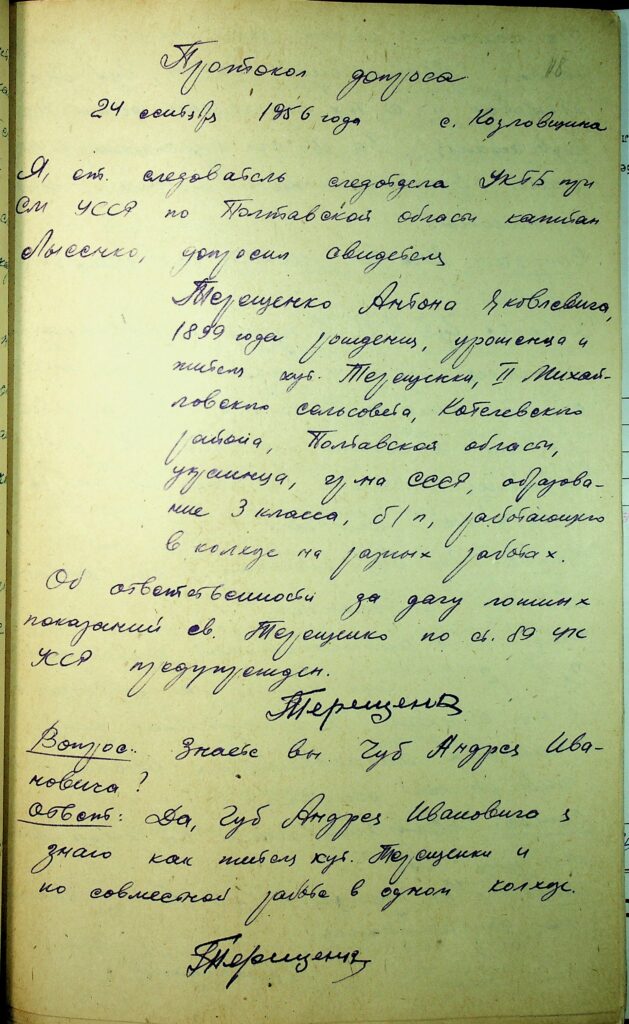 118
Протокол допроса
24 сентября 1956 года с. Козловщина
Я, ст. следователь следотдела УКГБ при
СМ УССР по Полтавской области капитан
Лысенко, допросил свидетеля
Терещенко Антона Яковлевича,
1899 года рождения, уроженца и
жителя хут. Терещенки, II Михай-
ловского сельсовета, Котелевского
района, Полтавской области,
украинца, гр-на СССР, образова-
ние 3 класса, б/п, работающего
в колхозе на разных работах.
Об ответственности за дачу ложных
показаний св. Терещенко по ст. 89 УК
УССР предупрежден.
Терещенко
Вопрос: Знаете вы Чуб Андрея Ива-
новича?
Ответ: Да, Чуб Андрея Ивановича я
знаю как жителя хут. Терещенки и
по совместной работе в одном колхозе.
Терещенко